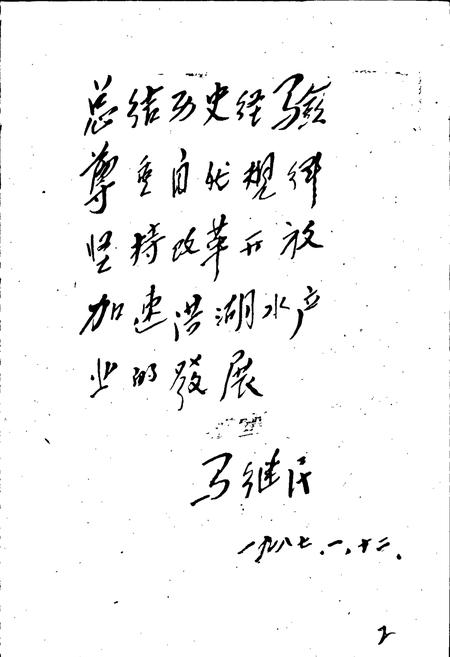 总结历史经验
尊重自然规律
坚持改革开放
加速洪湖水产
业的發展
马继民
一九八七.一.十二.
2